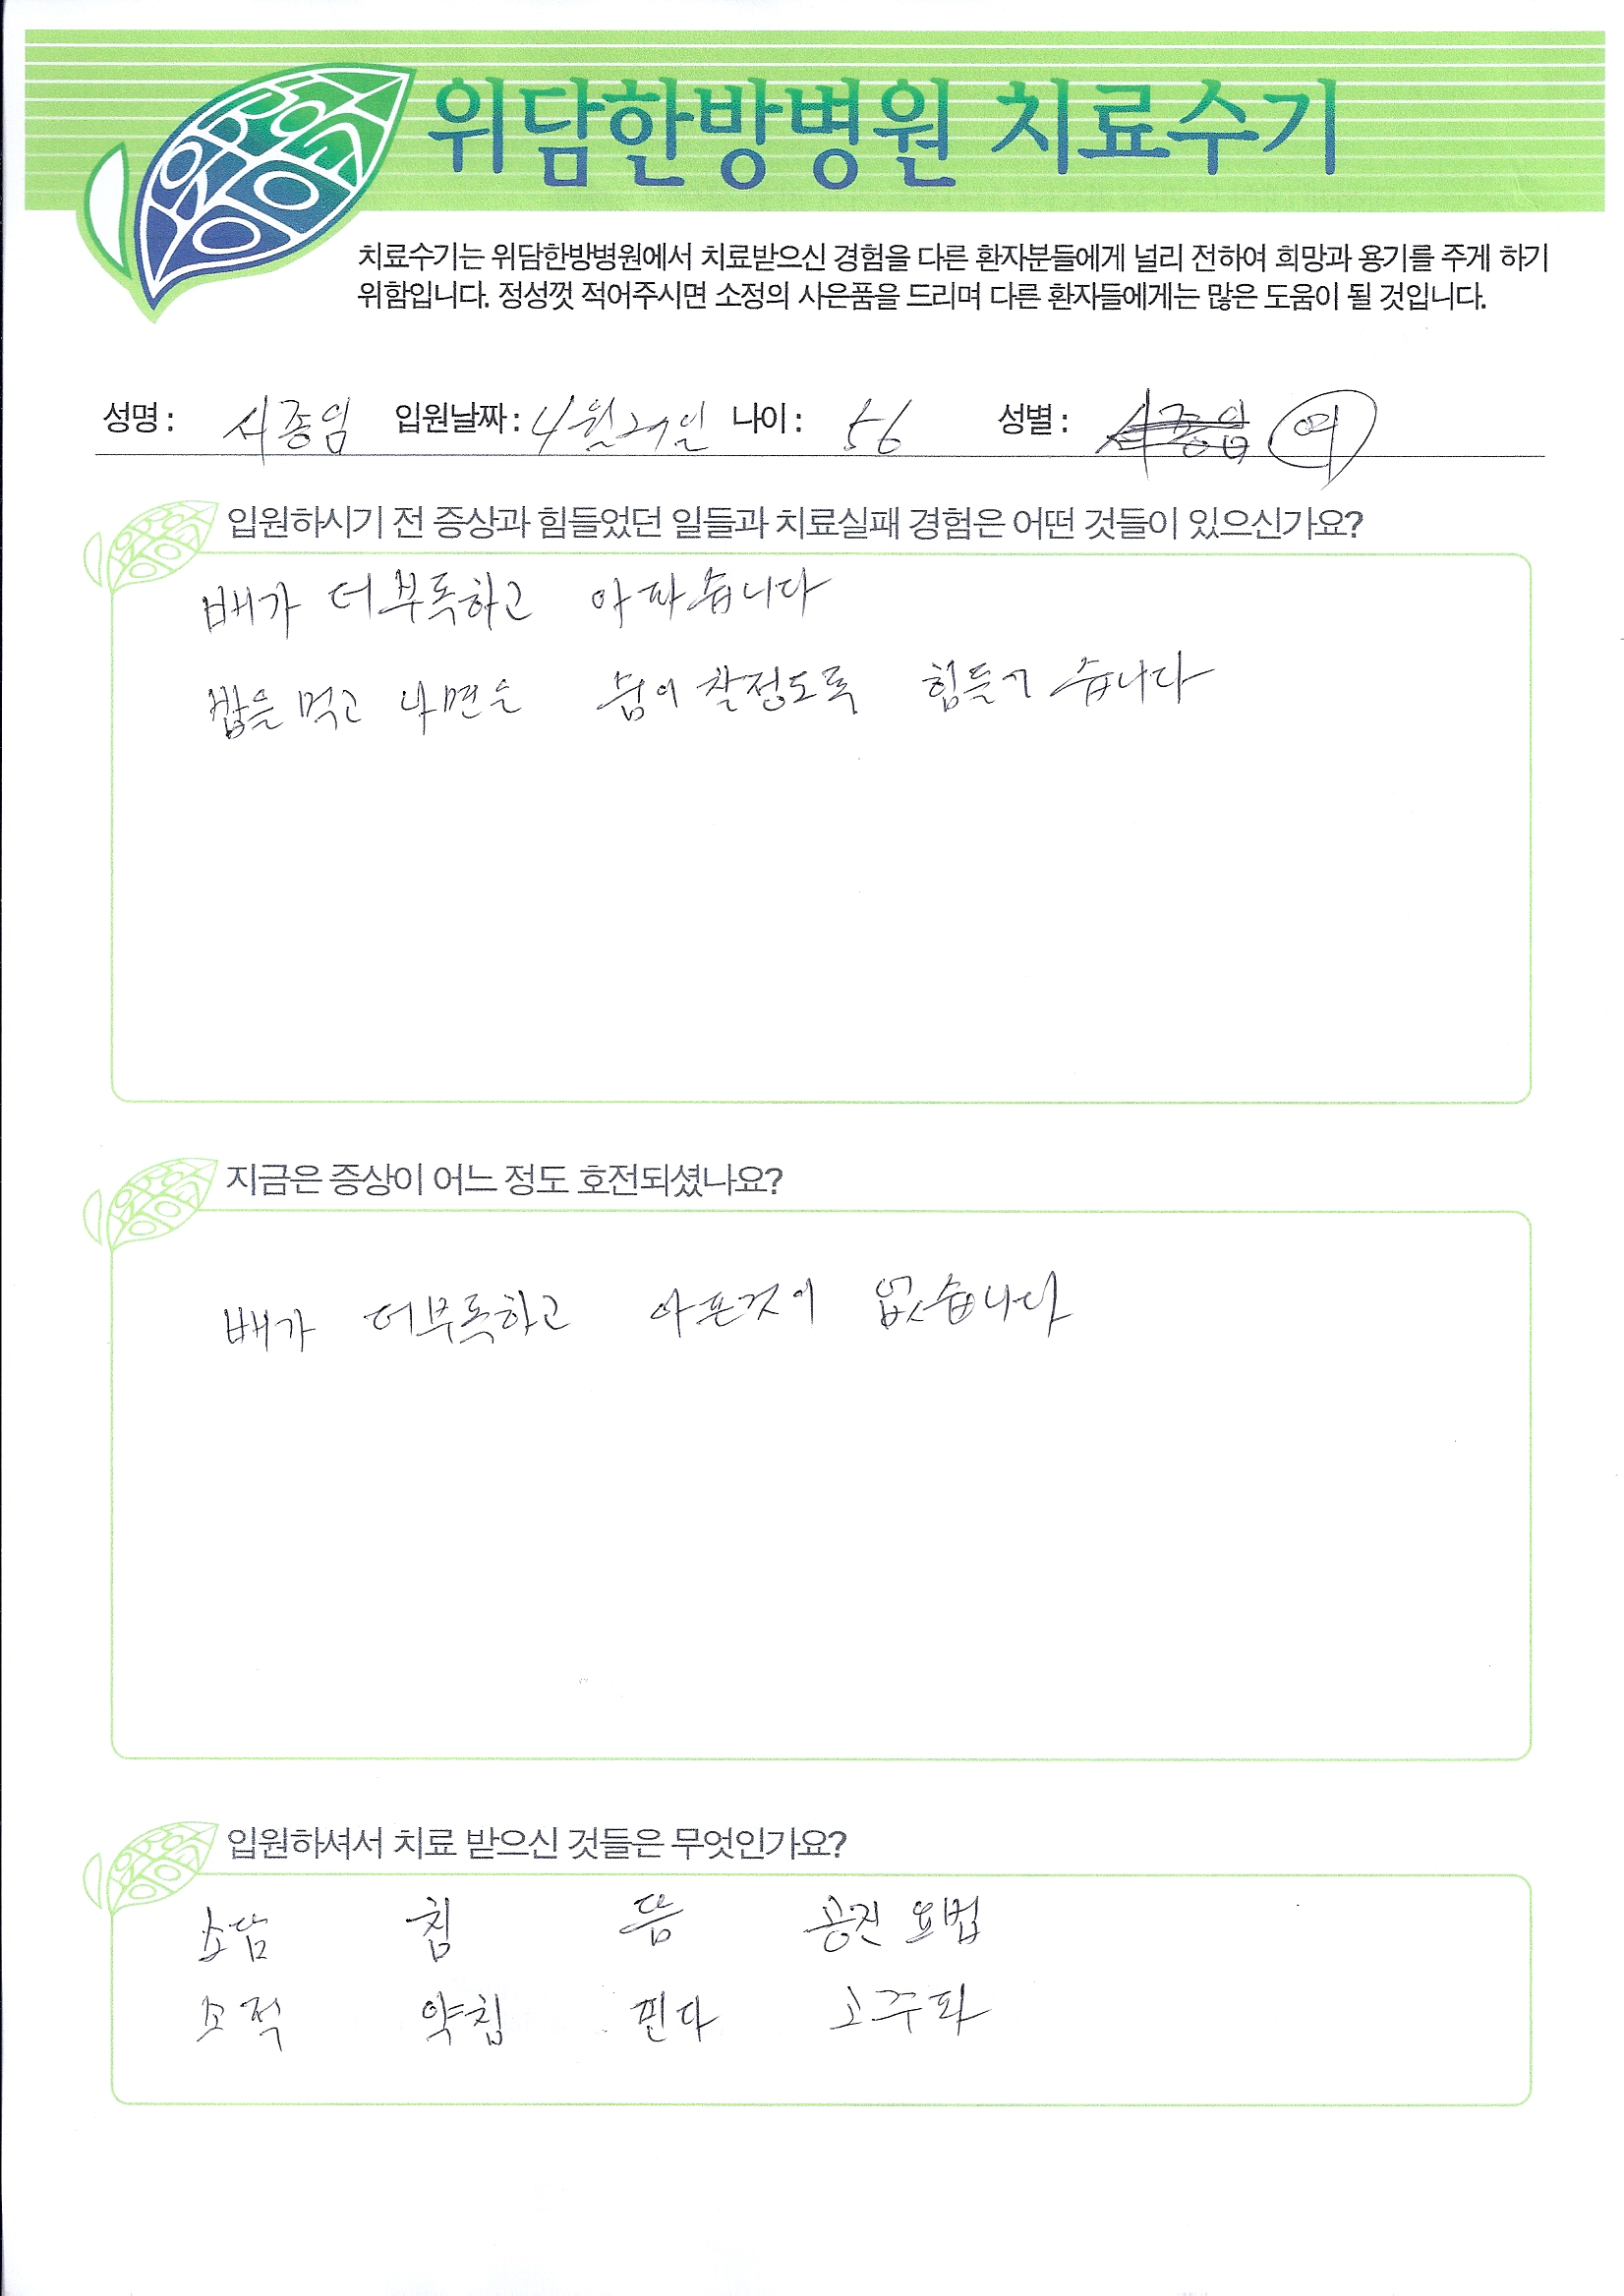 위담한방병원 치료수기
치료수기는 위담한방병원에서 치료받으신 경험을 다른 환자분들에게 널리 전하여 희망과 용기를 주게 하기
위함입니다. 정성껏 적어주시면 소정의 사은품을 드리며 다른 환자들에게는 많은 도움이 될 것입니다.
성명 : 서종임 입원날짜 : 4월 27일 나이 : 56 성별 : 여
입원하시기 전 증상과 힘들었던 일들과 치료실패 경험은 어떤 것들이 있으신가요?
배가 더부룩하고 아파습니다
밥을 먹고 나면은 숨이 찰정도록 힘들기 습니다
지금은 증상이 어느 정도 호전되셨나요?
배가 더부룩하고 아픈것이 없습니다
입원하셔서 치료 받으신 것들은 무엇인가요?
소담 침 뜸 공진 요법
소적 약침 핀다 고주파